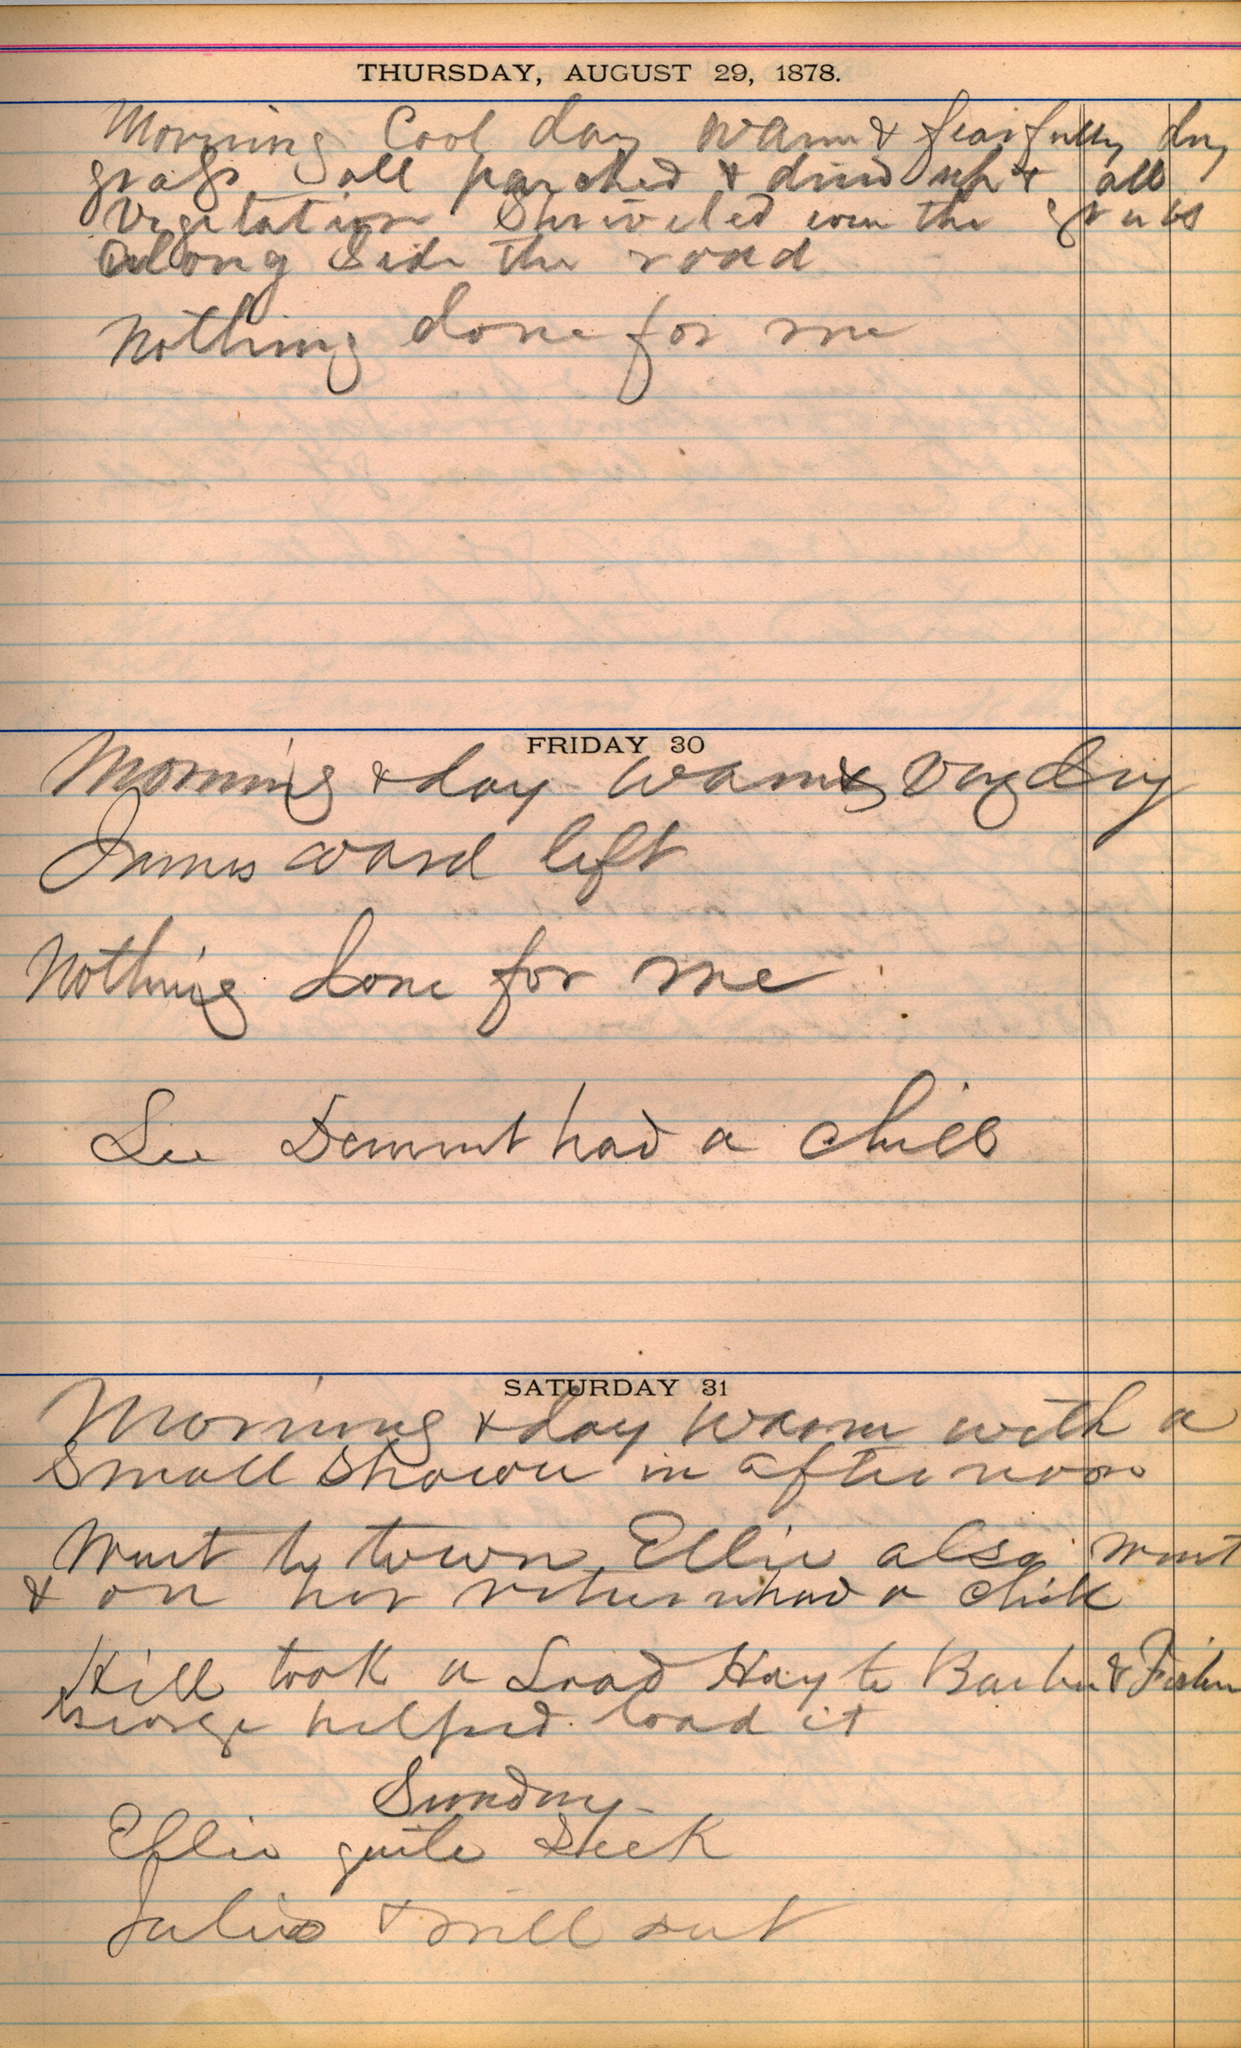 THURSDAY, AUGUST 29, 1878.
Morning Cool day warm & fearfully dry
grass all parched & dried up & all
vegetation Shriveled even the
along Side the road
Nothing done for me
FRIDAY 30
Morning & day warm & very dry
James Ward left
Nothing done for me
Lee Demmt had a chill
SATURDAY 31
Morning & day warm with a
Small Shower in afternoon
Went to town Ellie also went
& on her return had a chill
Hill took a Load Hay to Barber & Fisher
George helped load it
Sunday
Ellie quite Sick
Julia & Will out